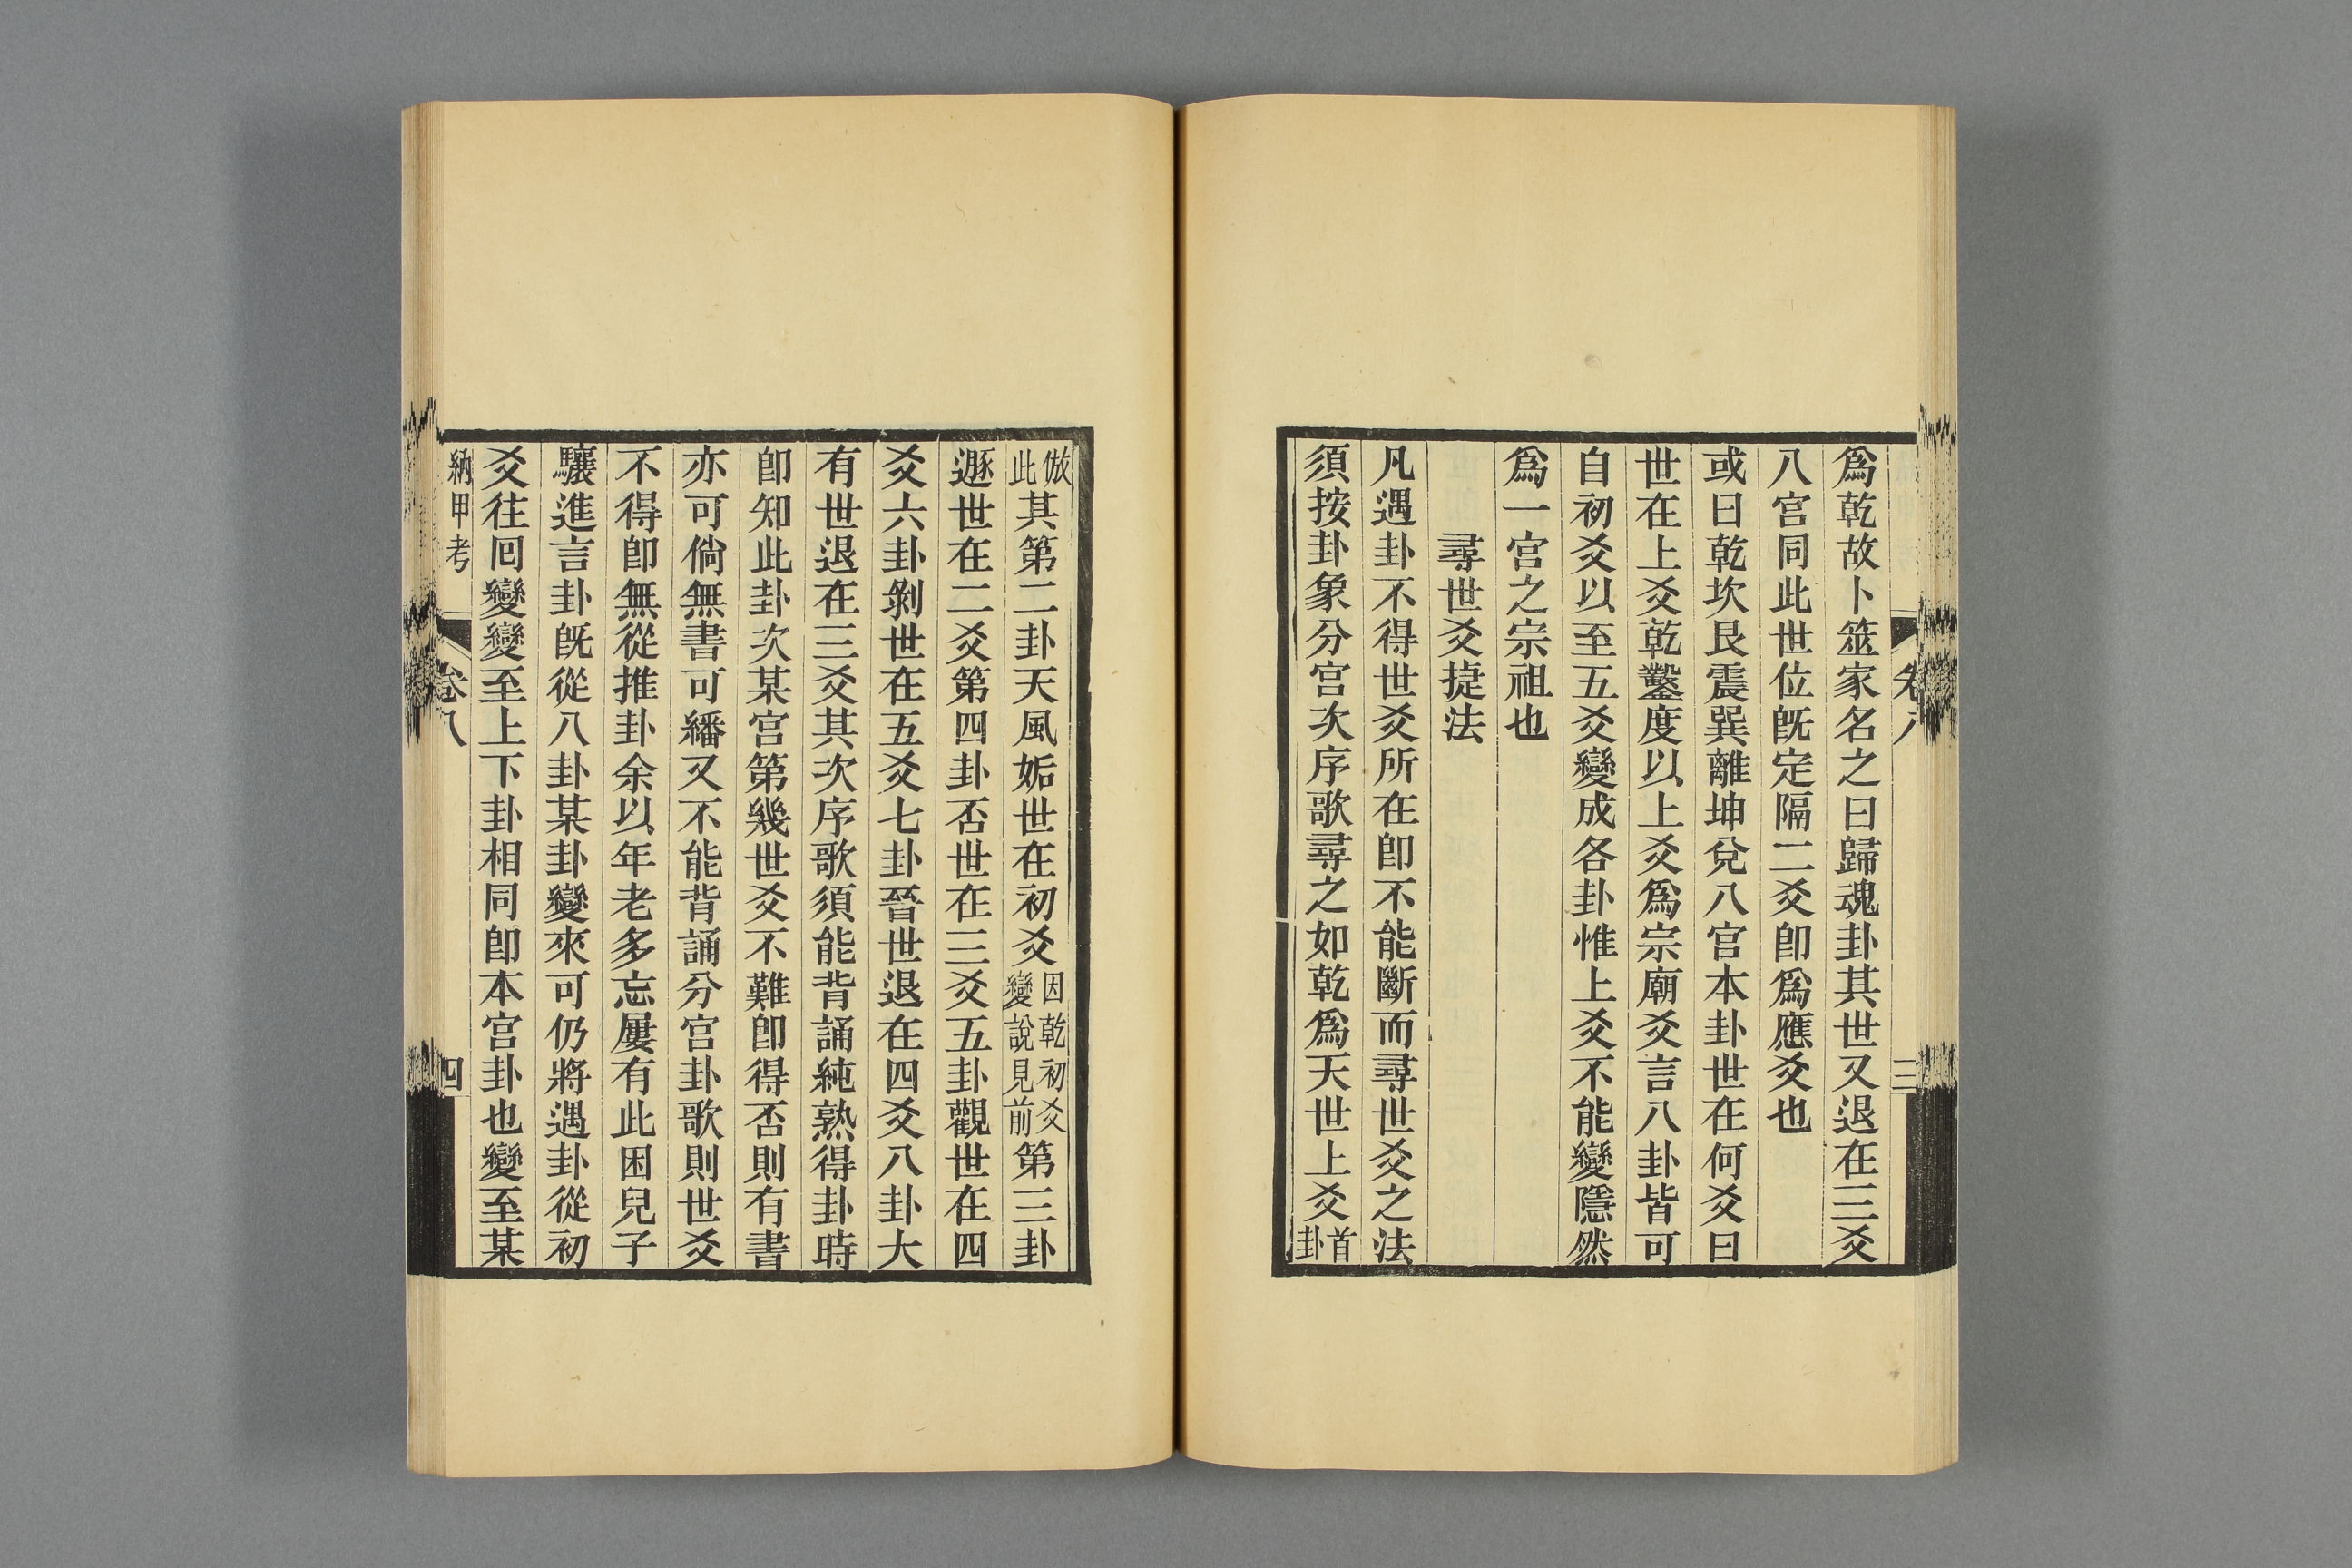 爲乾故卜筮家名之曰歸魂卦其世又退在三爻
八宮同此世位旣定隔二爻卽爲應爻也
或曰乾坎艮震巽離坤兌八宮本卦世在何爻曰
世在上爻乾鑿度以上爻爲宗廟爻言八卦皆可
自初爻以至五爻變成各卦惟上爻不能變隱然
爲一宮之宗祖也
尋世爻捷法
凡遇卦不得世爻所在卽不能斷而尋世爻之法
須按卦象分宮次序歌尋之如乾爲天世上爻首卦
倣此其第二卦天風姤世在初爻因乾初爻變說見前第三卦
遯世在二爻第四卦否世在三爻五卦觀世在四
爻六卦剝世在五爻七卦晉世退在四爻八卦大
有世退在三爻其次序歌須能背誦純熟得卦時
卽知此卦次某宮第幾世爻不難卽得否則有書
亦可倘無書可繙又不能背誦分宮卦歌則世爻
不得卽無從推卦余以年老多忘屢有此困兒子
驤進言卦旣從八卦某卦變來可仍將遇卦從初
爻往囘變變至上下卦相同卽本宮卦也變至某
納甲考
卷八
四